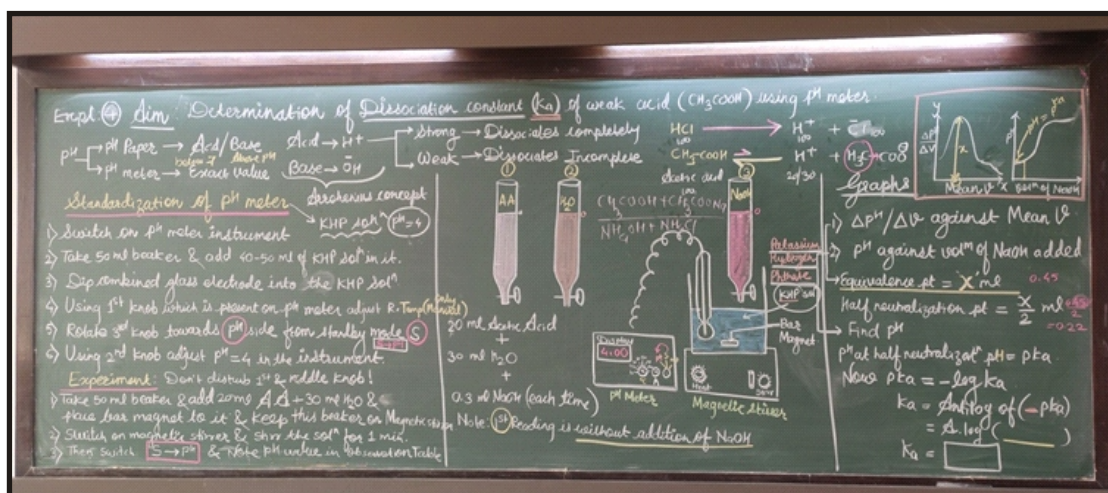 Expt. ④ Aim: Determination of Dissociation constant (Ka) of weak acid (CH₃COOH) using pH meter.
pH
pH Paper → Acid/Base
pH meter → Exact value
Acid → H⁺
Base → OH⁻
Strong → Dissociates completely
Weak → Dissociates Incomplete
HCl → H⁺ +
100 100 100
CH₃-COOH H⁺ + H₃C-COO⊖
Acetic acid 20/30
Arrhenius concept
Standardization of pH meter
KHP solⁿ (pH=4)
1) Switch on pH meter instrument
2) Take 50ml beaker & add 40-50 ml of KHP solⁿ in it.
3) Dip combined glass electrode into the KHP solⁿ
4) Using 1st knob which is present on pH meter adjust R. Temp (Manual)
5) Rotate 3rd knob towards pH side from Standby mode S
S→pH
6) Using 2nd knob adjust pH=4 in the instrument.
Experiment: Don't disturb 1st & middle knob!
1) Take 50ml beaker & add 20ml AA + 30ml H₂O &
place bar magnet to it & keep this beaker on Magnetic stirrer
2) Switch on magnetic stirrer & stirr the solⁿ for 1 min.
3) Then switch S→pH & Note pH value in observation Table
① ② ③
AA H₂O NaOH
CH₃COOH + CH₃COONa
NH₄OH + NH₄Cl
20 ml Acetic Acid
+
30 ml H₂O
+
0.3 ml NaOH (each time)
Note: 1st Reading is without addition of NaOH
Potassium
Hydrogen
Phthate
KHP solⁿ
Bar
Magnet
Display
4.00
pH Meter
Heat Stirr
Magnetic stirrer
Graphs
y
ΔP
ΔV
x
Mean V X
pH
Volᵐ of NaOH
1) ΔpH/ΔV against Mean V
2) pH against volᵐ of NaOH added
Equivalence pt = X ml 0.45
Half neutralization pt = X/2 ml 0.45/2
=0.22
Find pH
pH at half neutralizatⁿ pH = pKa.
Now pKa = -log Ka
Ka = Antilog of (-pKa)
= A.log (_____)
Ka =